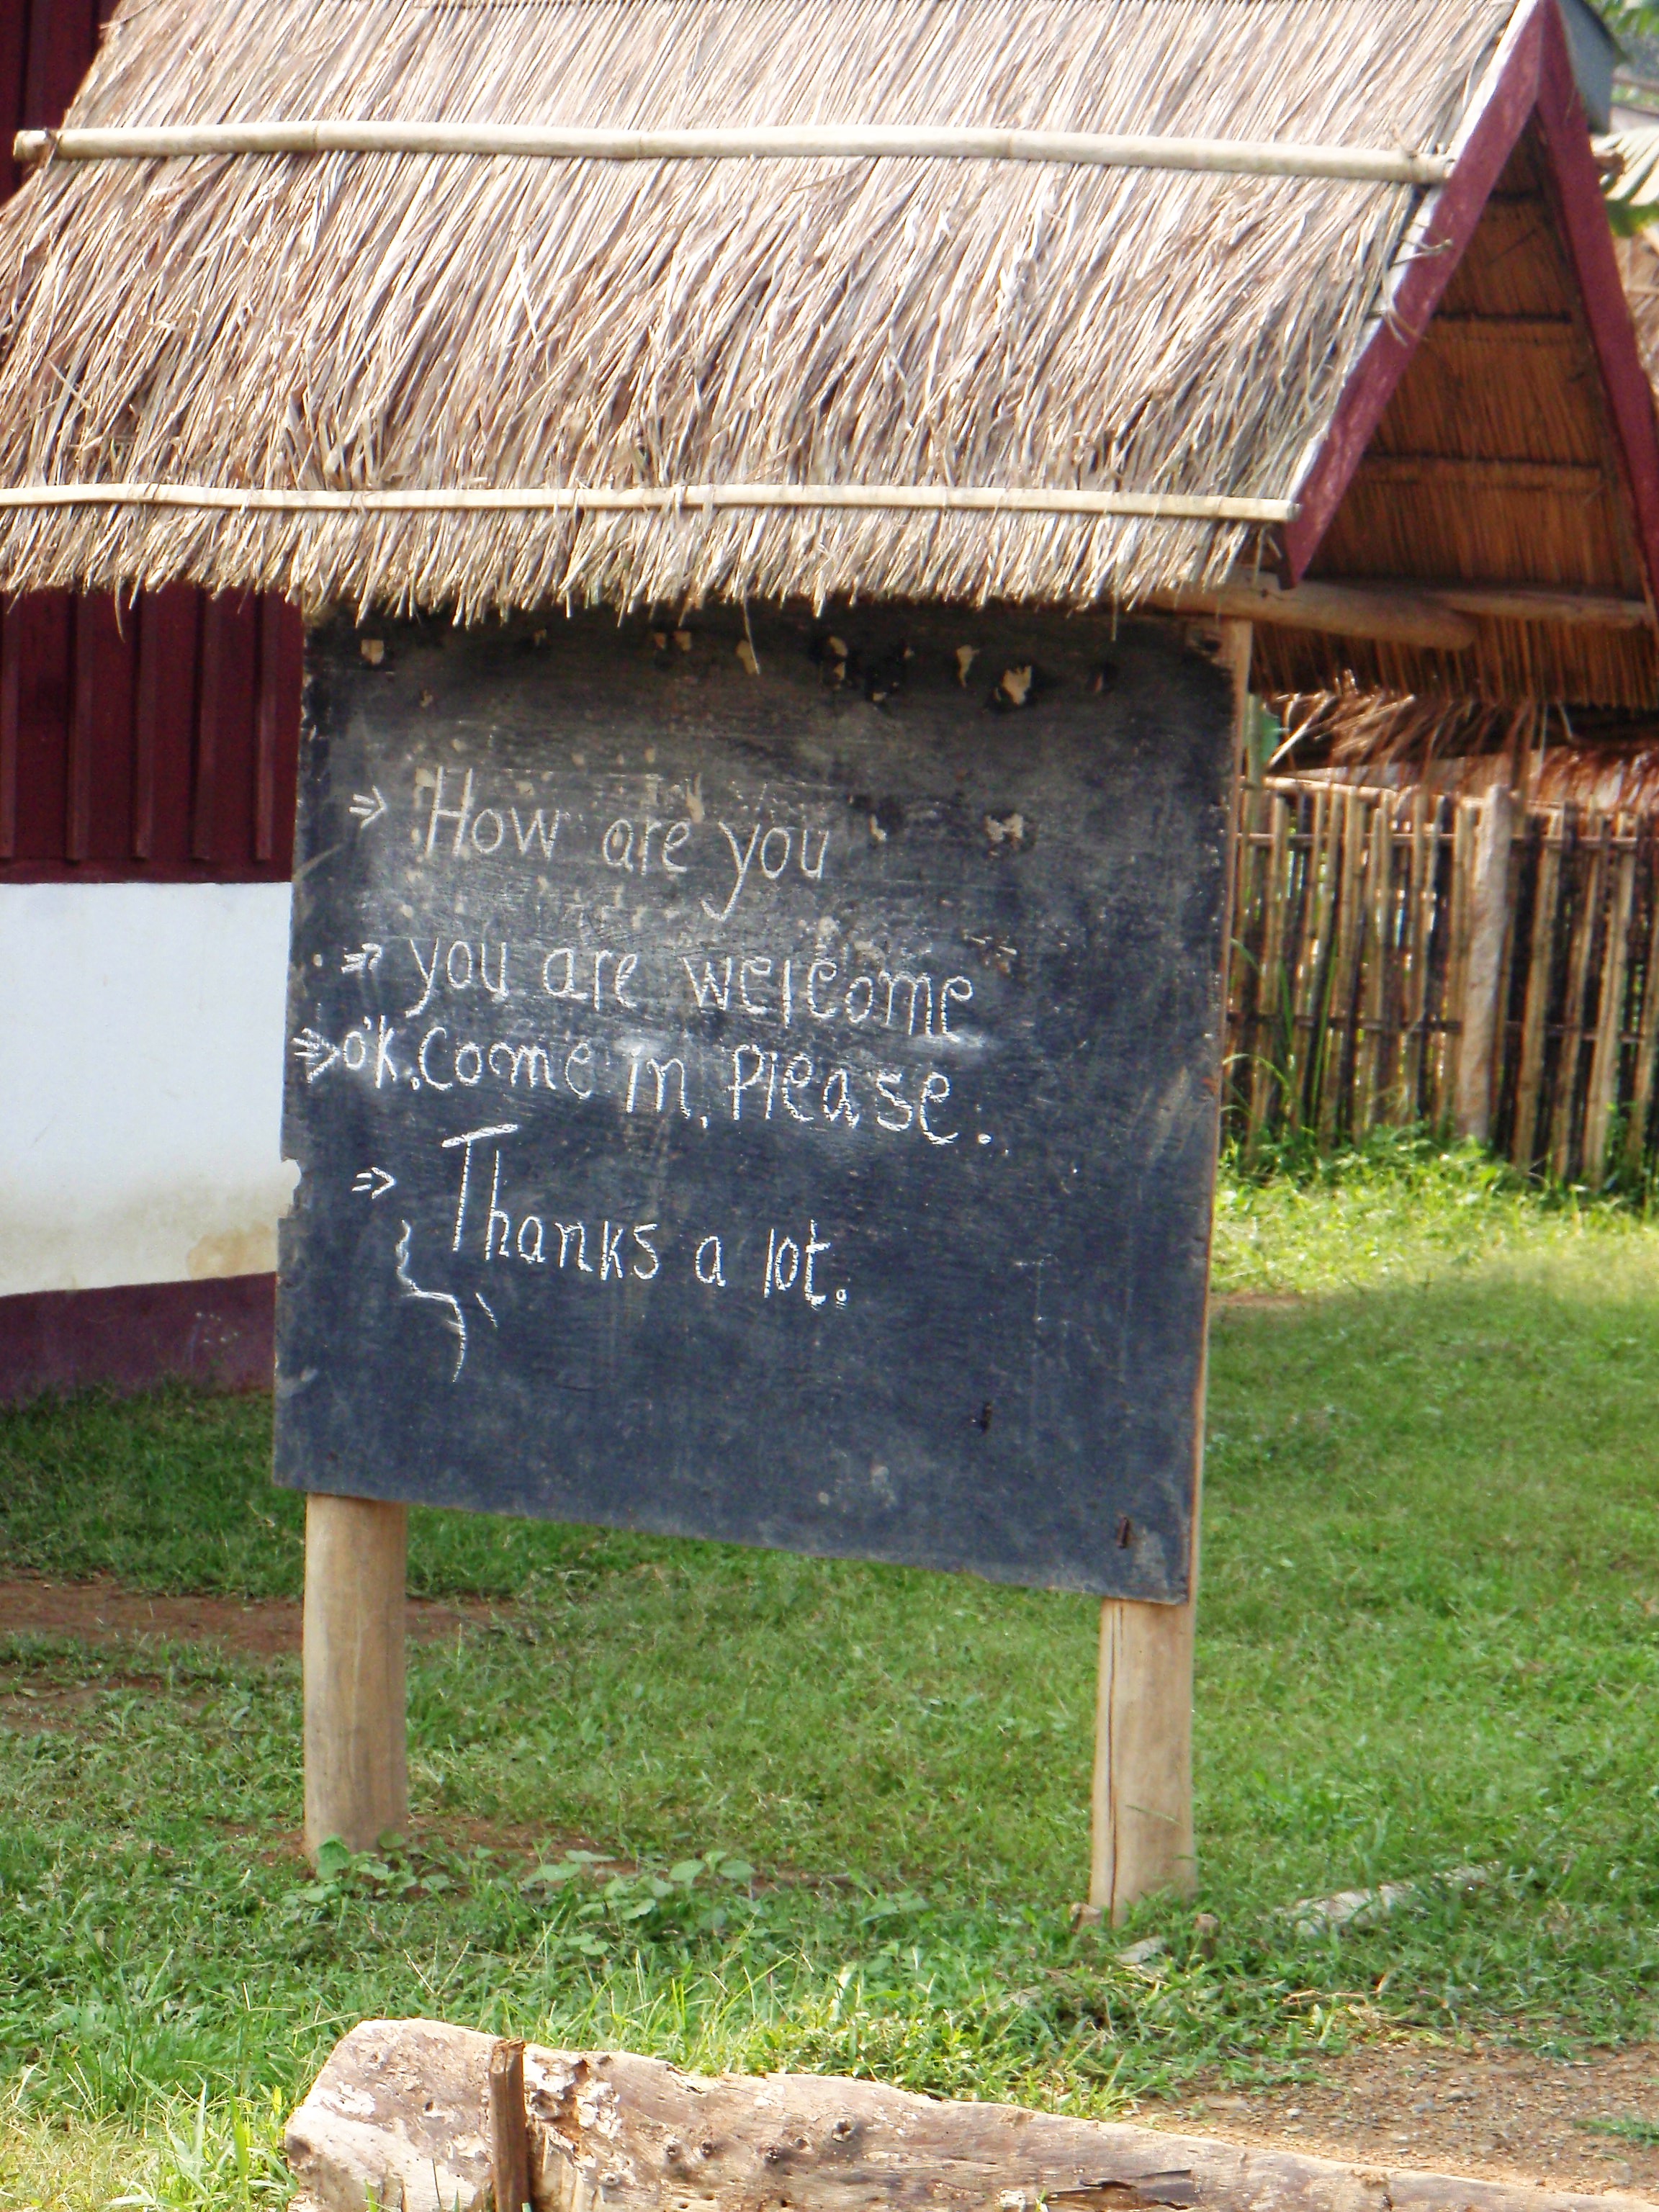 ⇒ How are you
. ⇒ you are welcome
⇒ ok. Come in, Please.
⇒ Thanks a lot.